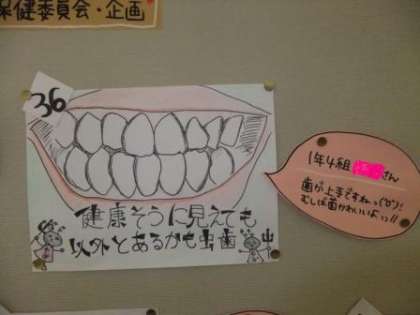 保健委員会・企画
36
健康そうに見えても
以外とあるかも虫歯
1年4組 さん
歯が上手ですねっ(°o°)!
むしば菌かわいいよっ!!